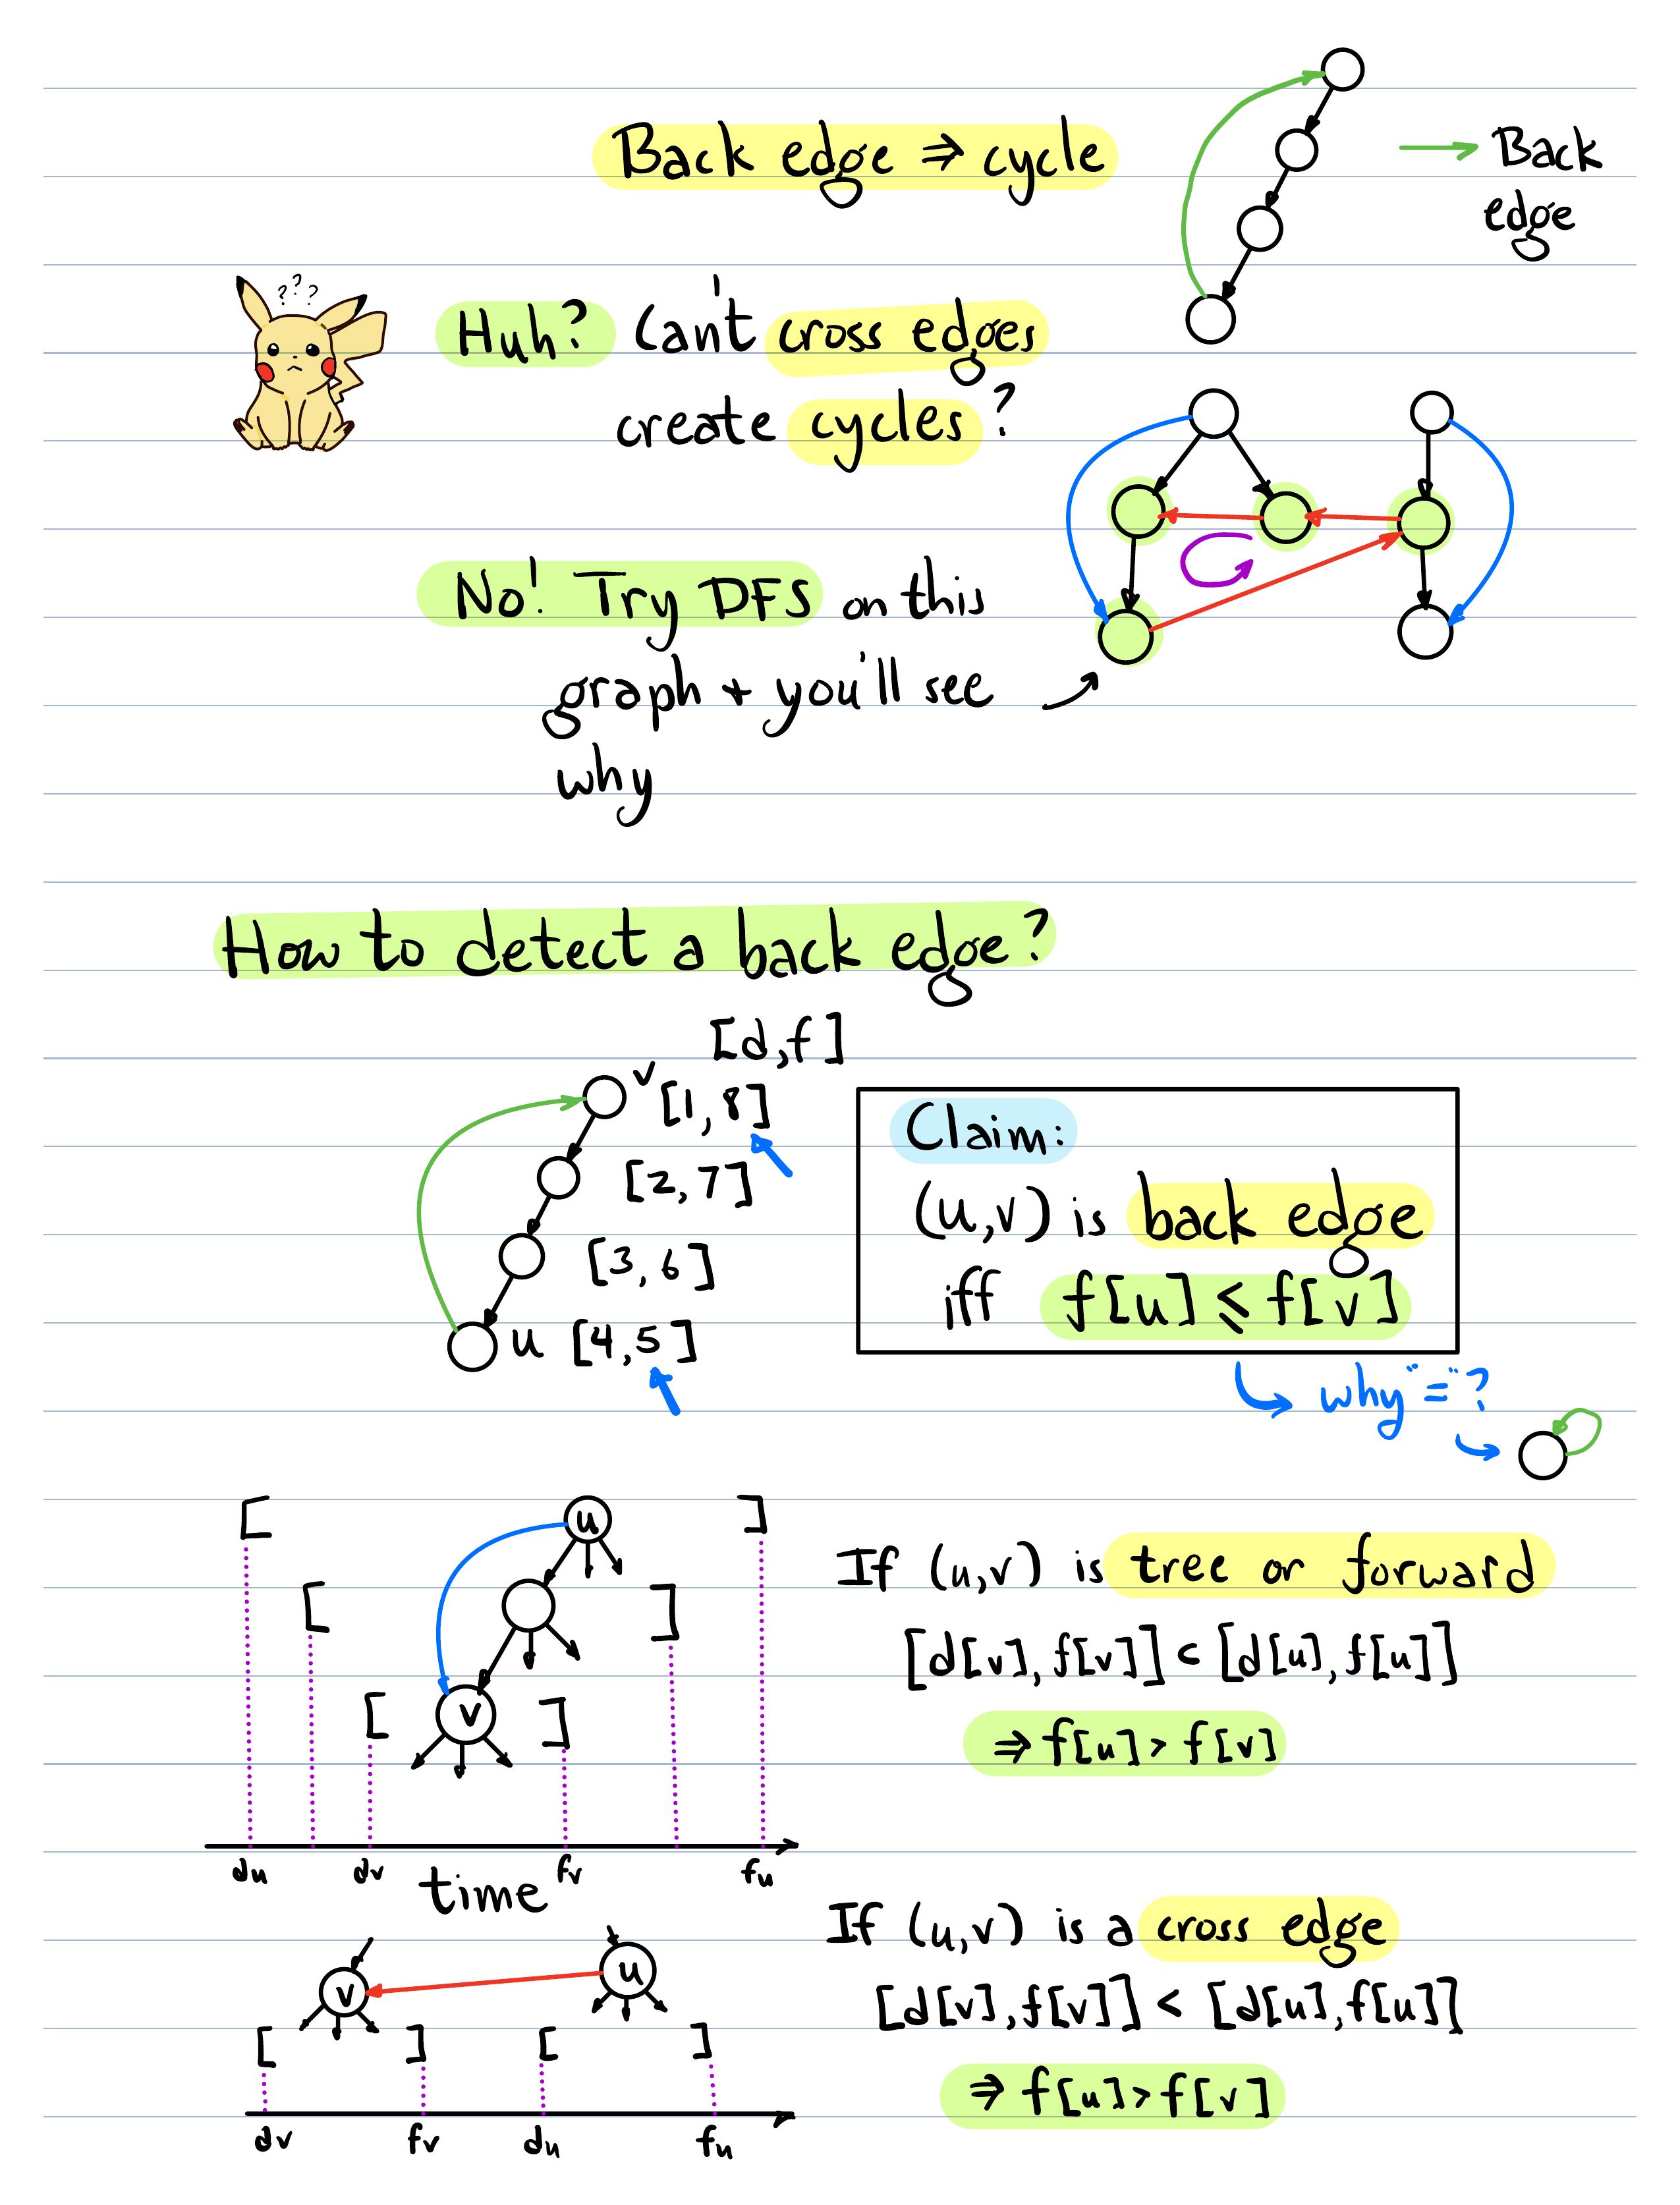 Back edge ⇒ cycle
→ Back
edge
? ? ?
Huh? Can't cross edges
create cycles?
No! Try DFS on this
graph + you'll see
why
How to detect a back edge?
[d,f]
v [1, 8]
[2, 7]
[3, 6]
u [4, 5]
Claim:
(u,v) is back edge
iff f[u] ≤ f[v]
why "="?
[ u ]
[ ]
[ v ]
du dv fv fu
time
If (u,v) is tree or forward
[d[v], f[v]] ⊂ [d[u], f[u]]
⇒ f[u] > f[v]
v u
[ ] [ ]
dv fv du fu
If (u,v) is a cross edge
[d[v], f[v]] < [d[u], f[u]]
⇒ f[u] > f[v]